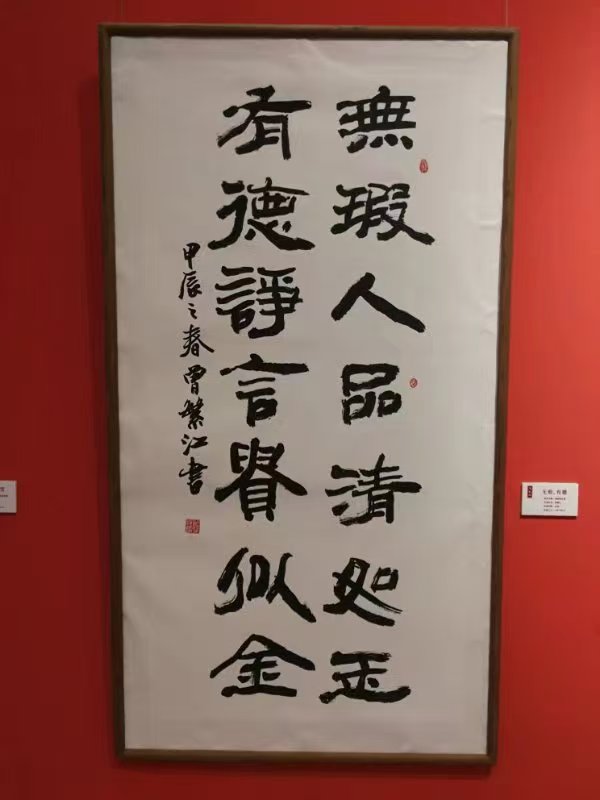 無瑕人品清如玉
有德諍言貴似金
甲辰之春曾繁江書